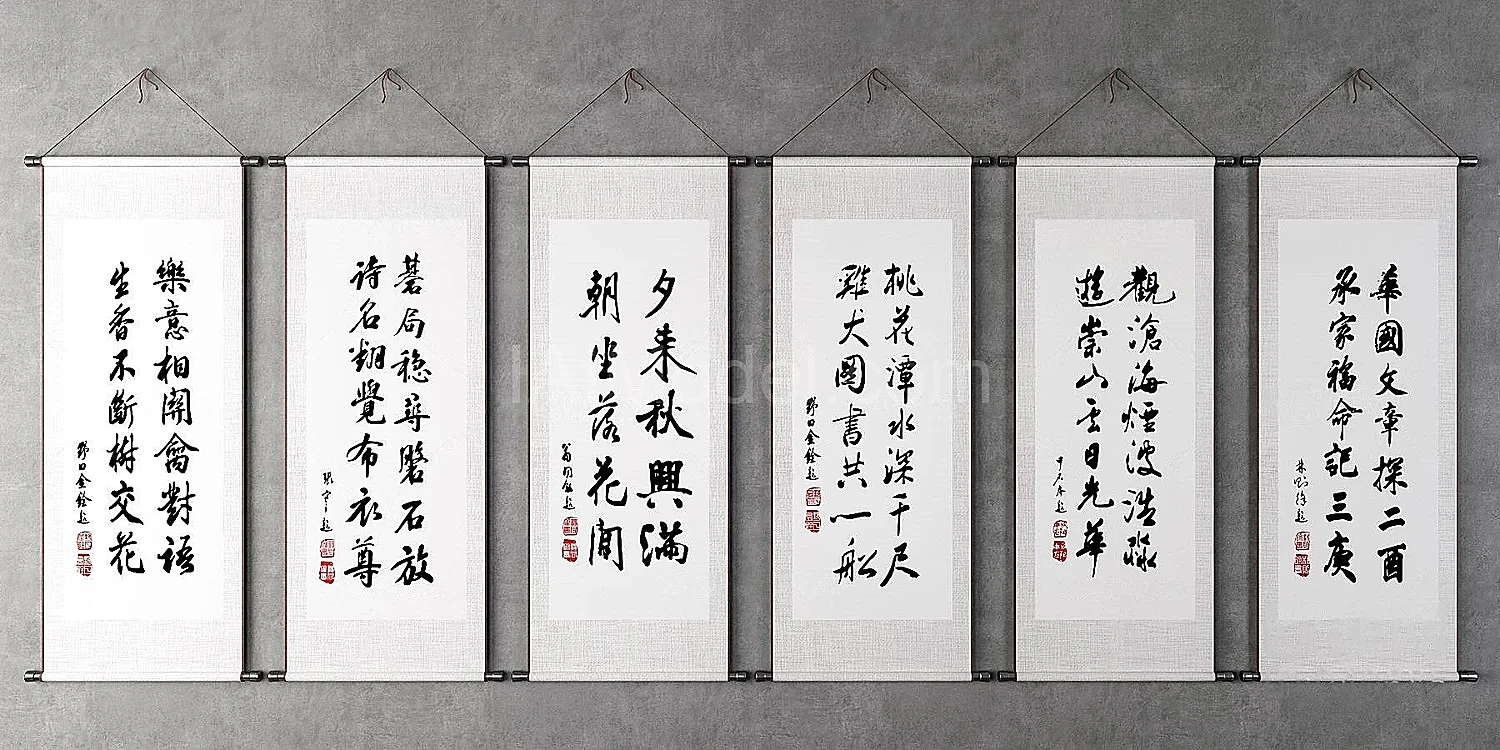 華國文章探二酉
承家福命記三庚
林則徐題
觀滄海煙波浩淼
遊崇山雲日光華
桃花潭水深千尺
雞犬圖書共一船
夕來秋興滿
朝坐落花閒
翁同龢題
碁局穩尋磐石放
詩名翻覺布衣尊
樂意相關禽對語
生香不斷樹交花